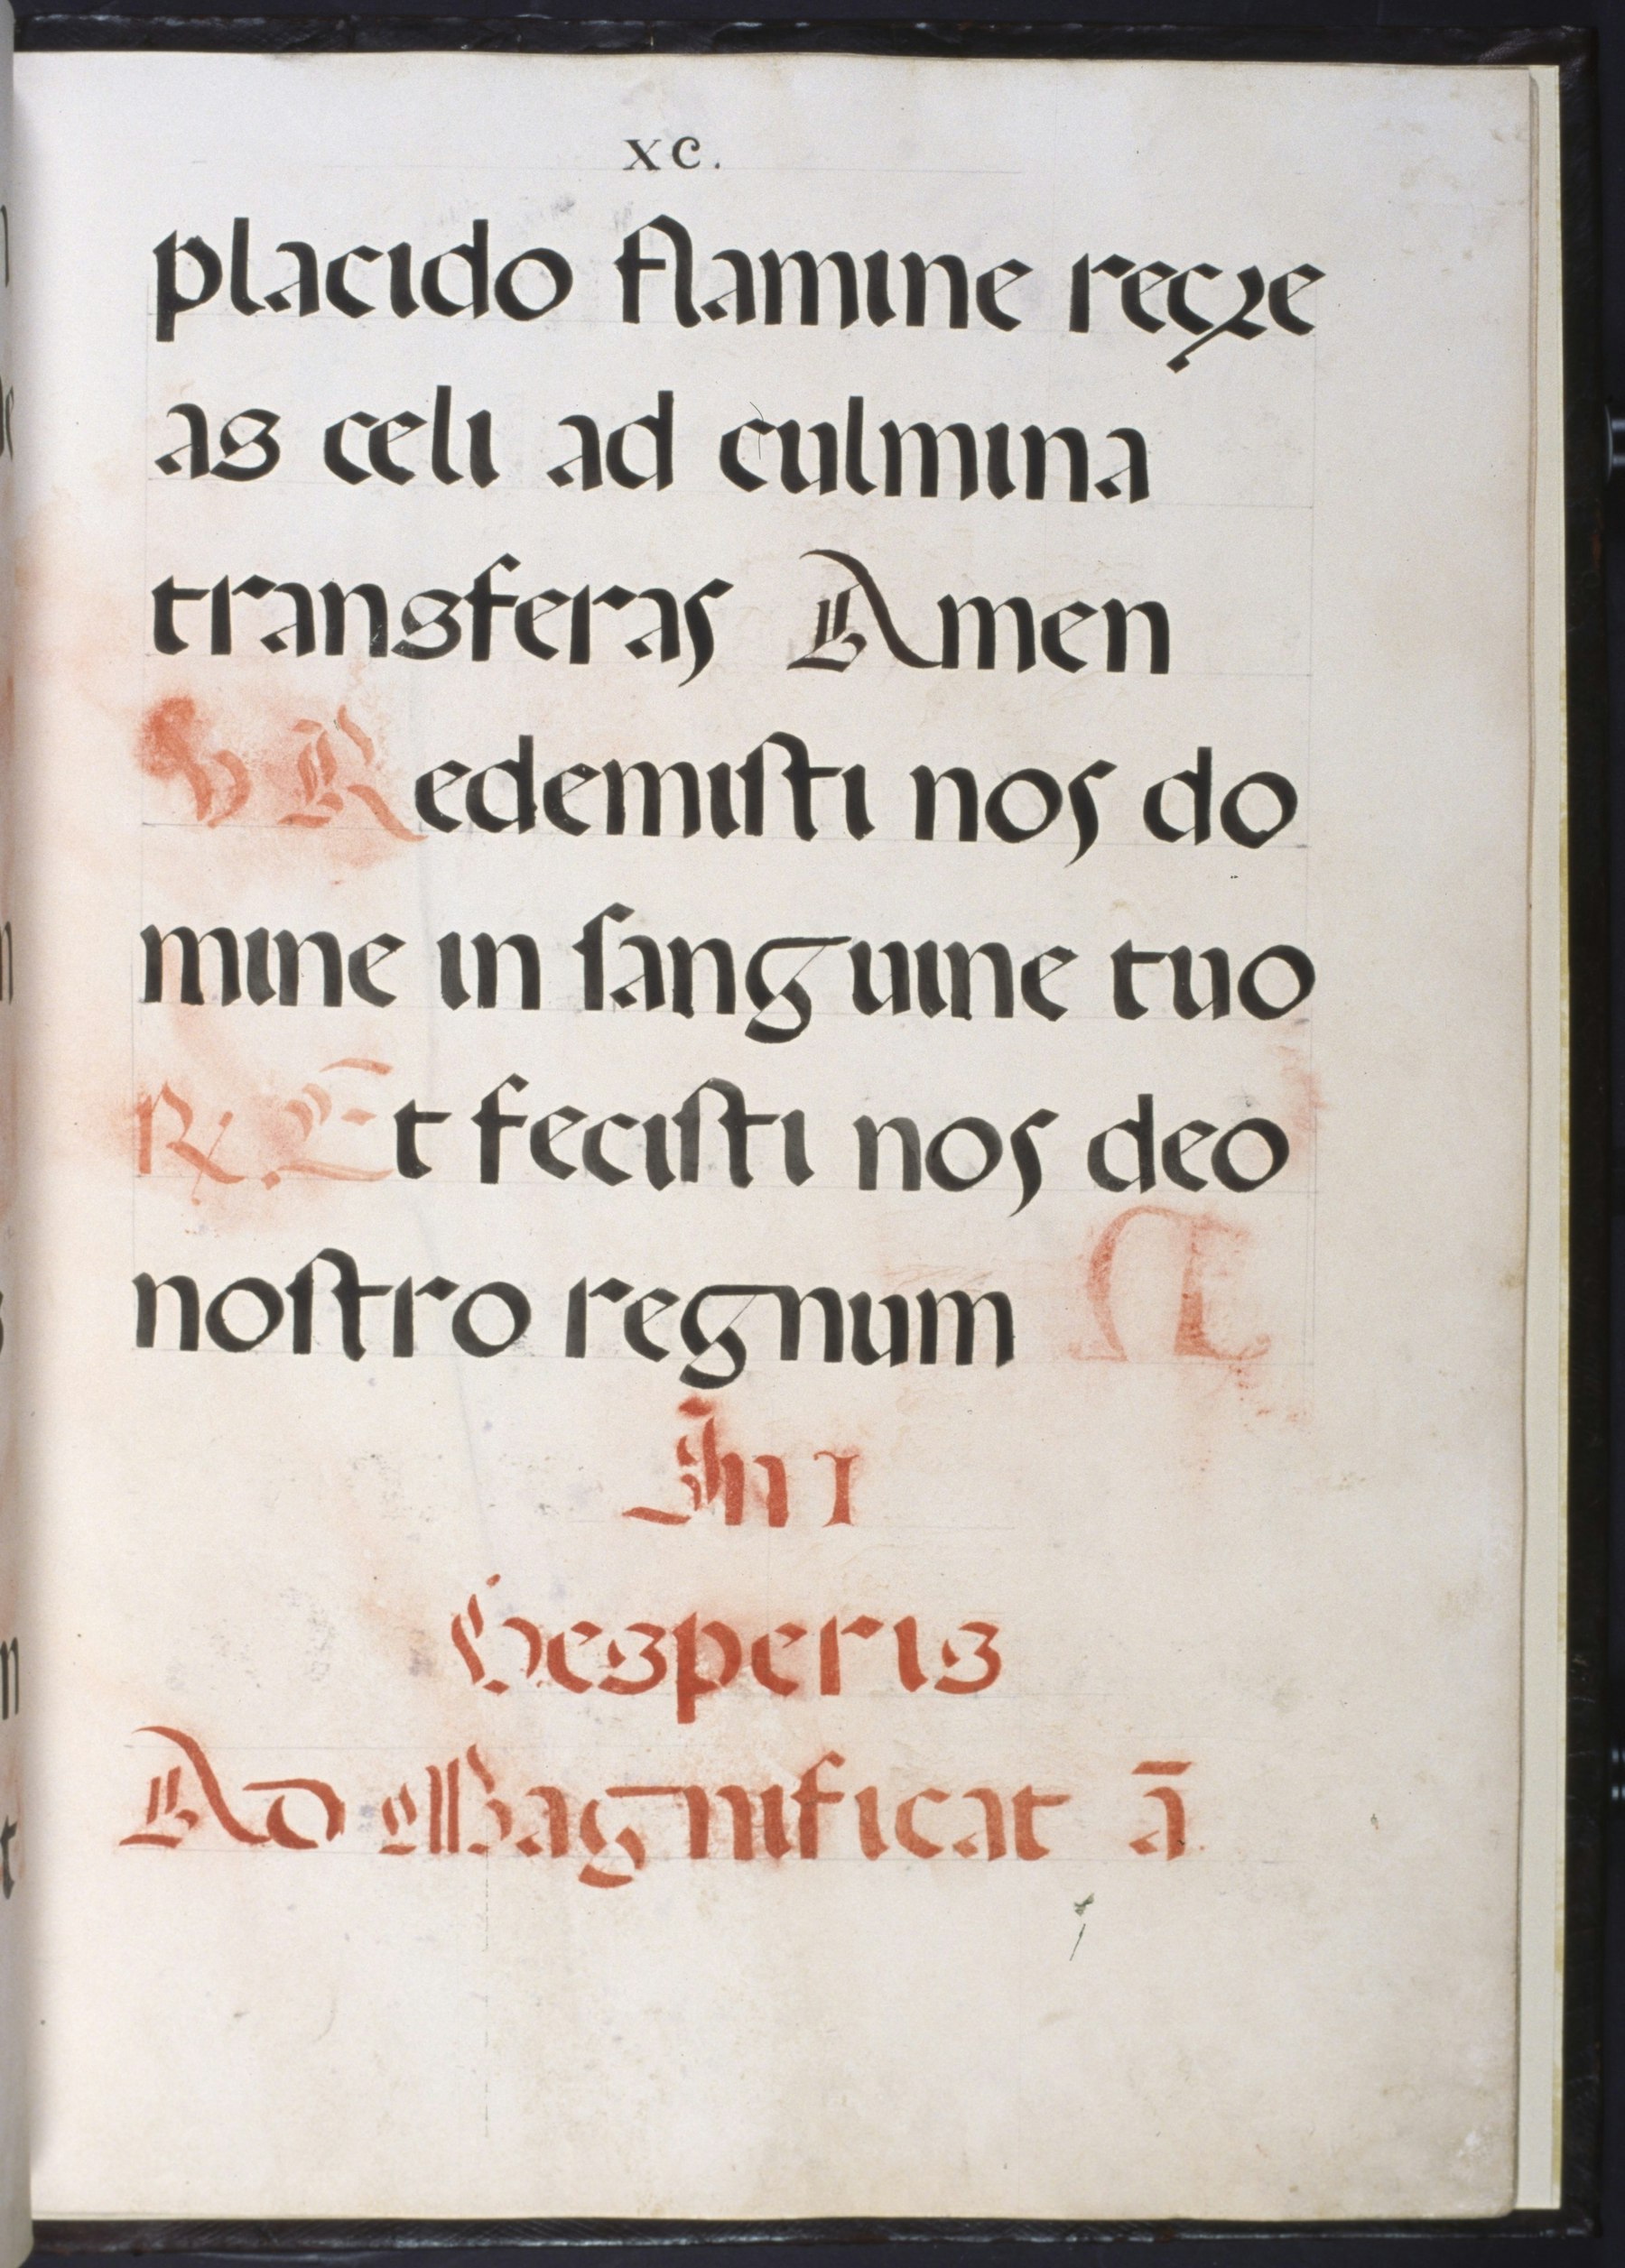 xc.
placido flamine recre
as celi ad culmina
transferas Amen
℣ Redemisti nos do
mine in sanguine tuo
℟. Et fecisti nos deo
nostro regnum
In I
Vesperis
Ad Magnificat ā